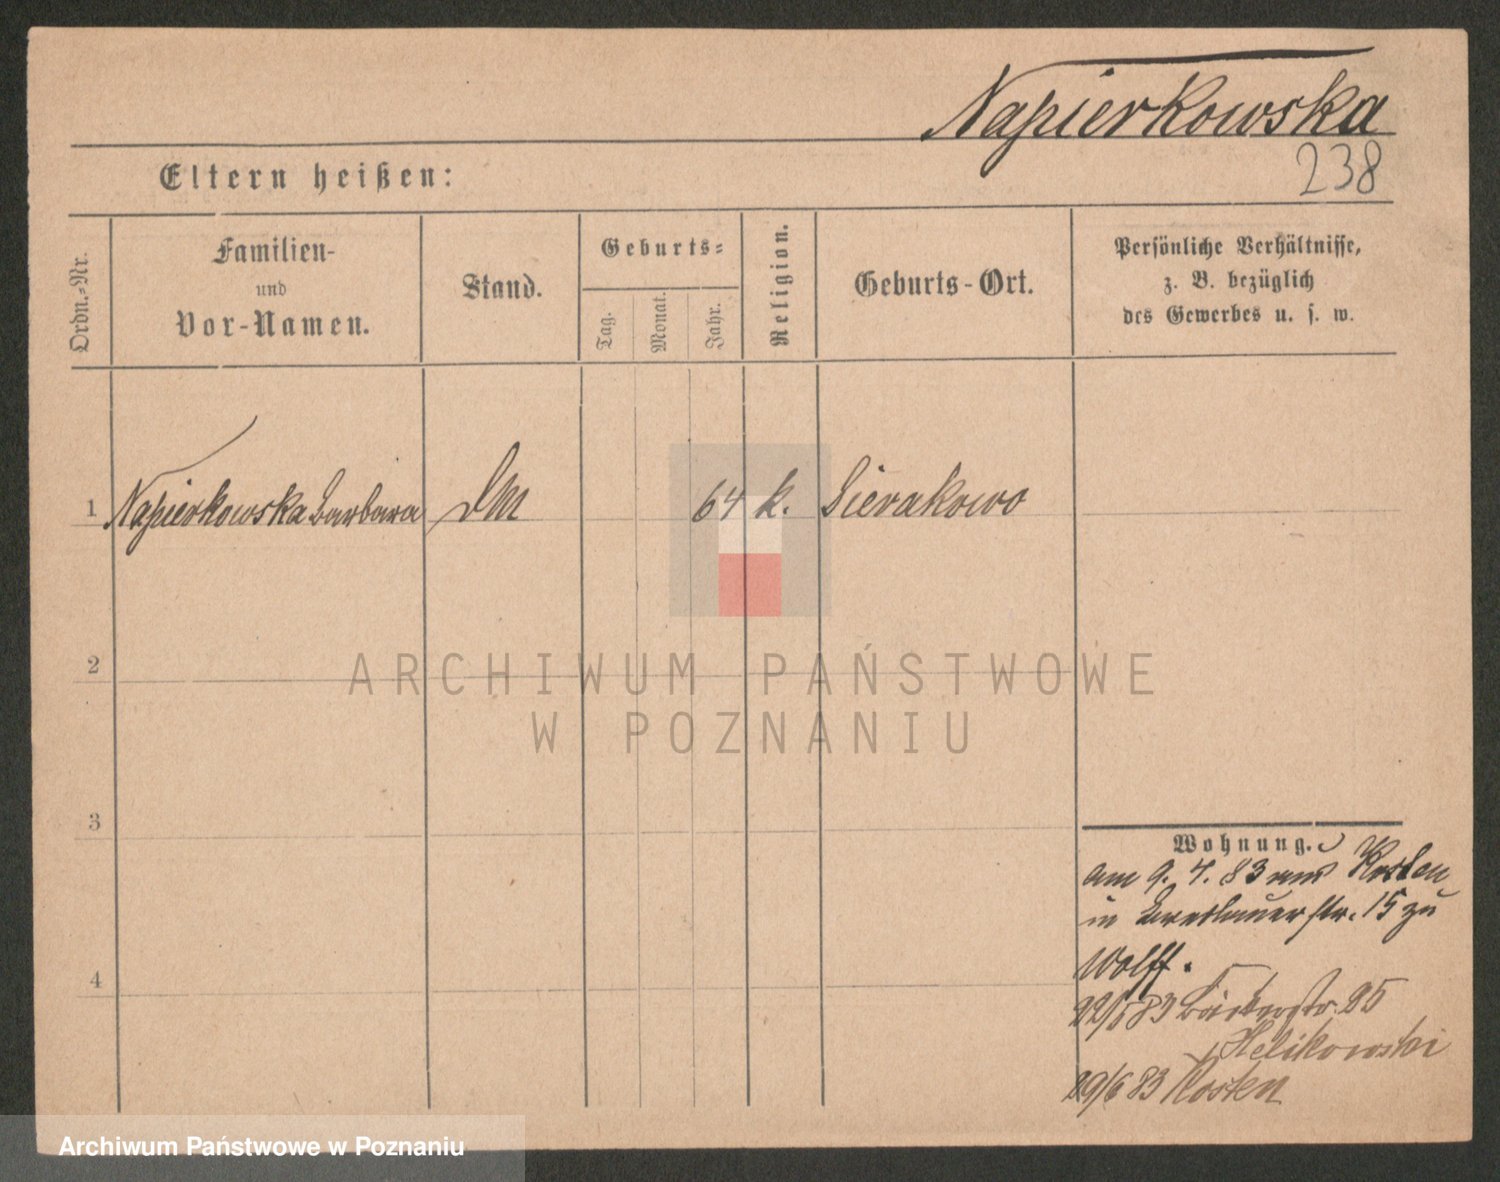 Napierkowska
238
Eltern heißen:
Ordn.-Nr.
Familien-
und
Vor-Namen.
Stand.
Geburts-
Tag.
Monat.
Jahr.
Religion.
Geburts-Ort.
Persönliche Verhältnisse,
z. B. bezüglich
des Gewerbes u. s. w.
1 Napierkowska Barbara DM 64 k. Sierakowo
2
3
4
ARCHIWUM PAŃSTWOWE
W POZNANIU
Wohnung.
am 9. 4. 83 aus Kosten
in Breslauerstr. 15 zu
Wolff.
83 25
Helikowski
29/6 83 Kosten
Archiwum Państwowe w Poznaniu